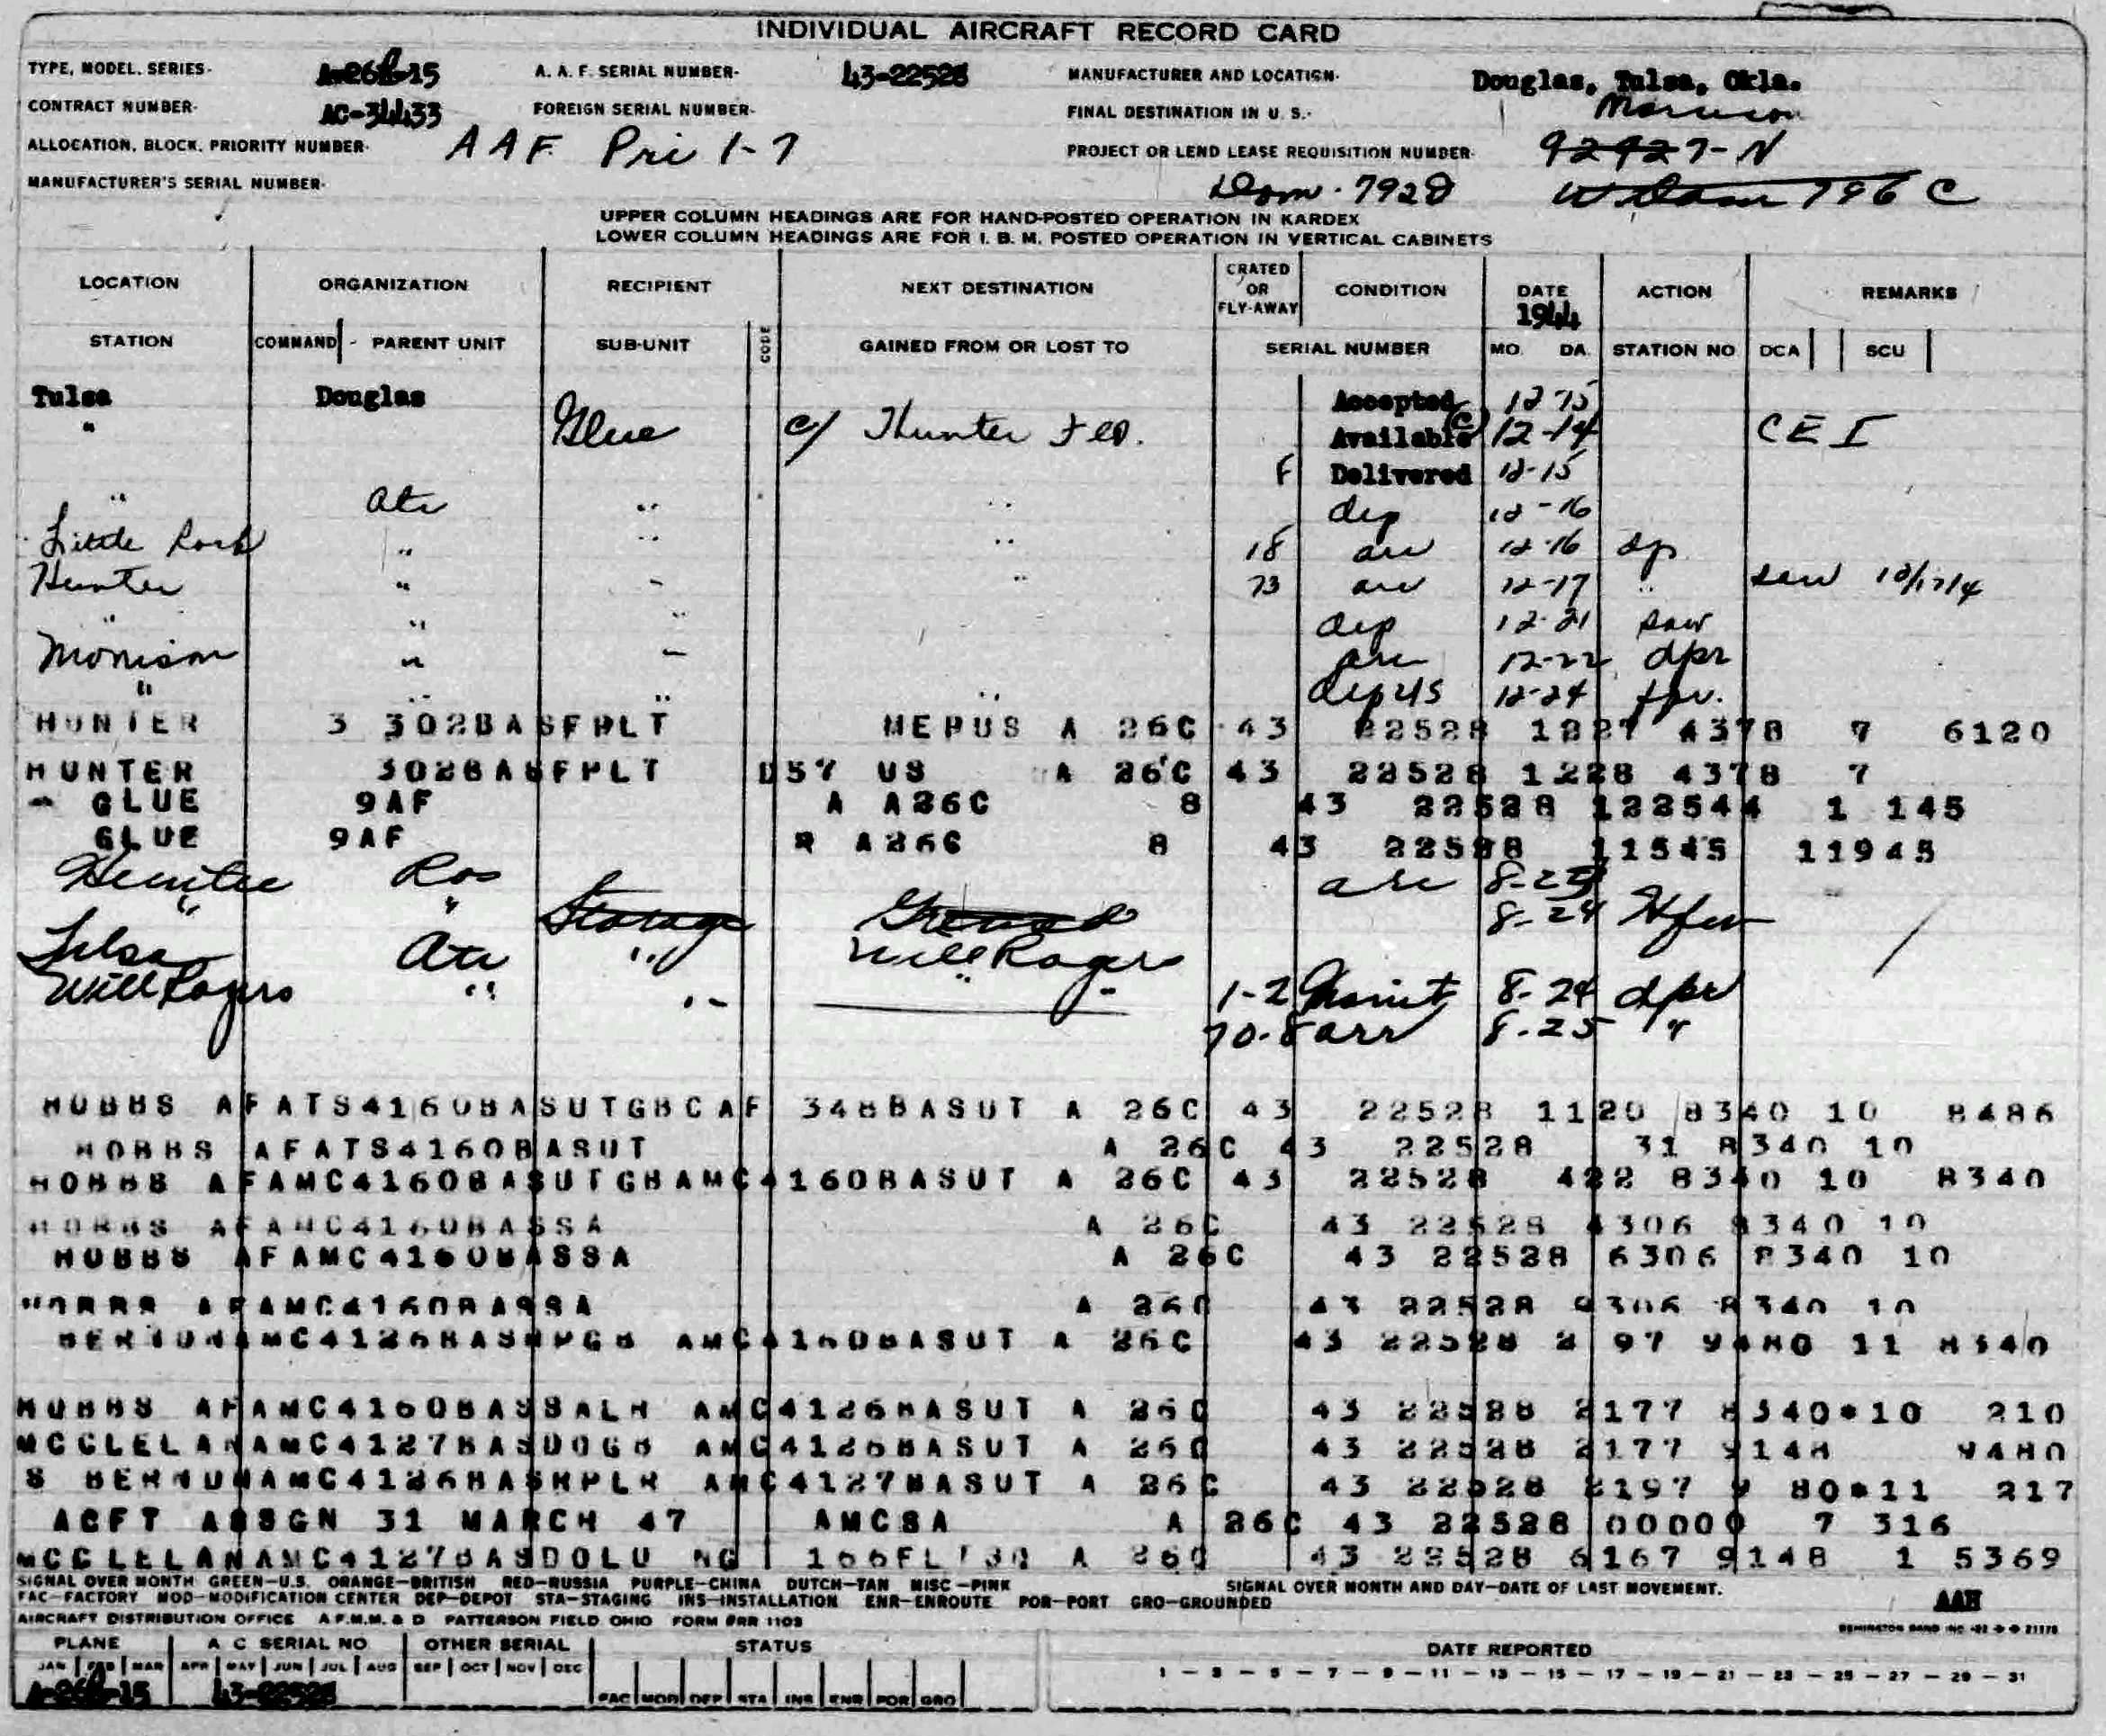 INDIVIDUAL AIRCRAFT RECORD CARD
TYPE, MODEL, SERIES- A-26C-15 A. A. F. SERIAL NUMBER- 43-22528 MANUFACTURER AND LOCATION- Douglas, Tulsa, Okla.
CONTRACT NUMBER- AC-34433 FOREIGN SERIAL NUMBER- FINAL DESTINATION IN U. S.- Morrison
ALLOCATION, BLOCK, PRIORITY NUMBER- AAF Pri 1-7 PROJECT OR LEND LEASE REQUISITION NUMBER- 92927-N
MANUFACTURER'S SERIAL NUMBER-
UPPER COLUMN HEADINGS ARE FOR HAND-POSTED OPERATION IN KARDEX
LOWER COLUMN HEADINGS ARE FOR I. B. M. POSTED OPERATION IN VERTICAL CABINETS
LOCATION ORGANIZATION RECIPIENT NEXT DESTINATION CRATED OR FLY-AWAY CONDITION DATE 1944 ACTION REMARKS
STATION COMMAND - PARENT UNIT SUB-UNIT CODE GAINED FROM OR LOST TO SERIAL NUMBER MO. DA. STATION NO DCA SCU
Tulsa Douglas Accepted
" Glue c/ Hunter Fld. Available 12-14 CEI
F Delivered 12-15
" Atc " " dep 12-16
Little Rock " " " 18 arr 12-16 dp
Hunter " " " 73 arr 12-17 "
" " " dep 12-21 saw
Morrison " " arr 12-22 dpr
" " " " dep US 12-24
HUNTER 3 302BASFPLT MEPUS A 26C 43 22528 1227 4378 7 6120
HUNTER 302BASFPLT D57 US A 26C 43 22528 1228 4378 7
GLUE 9AF A A26C 8 43 22528 122544 1 145
GLUE 9AF R A26C 8 43 22528 11545 11945
Hunter arr
" " Storage 8-24
Tulsa Atc " Will Rogers
Will Rogers " " " 1-2 Maint 8-24 dpr
70-8 arr 8-25 "
HOBBS AFATS4160BASUTGBCAF 348BASUT A 26C 43 22528 1120 8340 10 8486
HOBBS AFATS4160BASUT A 26C 43 22528 31 8340 10
HOBBS AFAMC4160BASUTGBAMC4160BASUT A 26C 43 22528 422 8340 10 8340
HOBBS AFAMC4160BASSA A 26C 43 22528 4306 8340 10
HOBBS AFAMC4160BASSA A 26C 43 22528 6306 8340 10
HOBBS AFAMC4160BASSA A 26C 43 22528 9306 8340 10
AMC4126BAS AMC4160BASUT A 26C 43 22528 2 97 9480 11 8340
HOBBS AFAMC4160BASSALR AMC4126BASUT A 26C 43 22528 2177 8340*10 210
MCCLELANAMC4127BASDOGB AMC4126BASUT A 26C 43 22528 2177 9148 9480
S BERNDNAMC4126BASRPLR AMC4127BASUT A 26C 43 22528 2197 9 80*11 217
ACFT ASSGN 31 MARCH 47 AMCSA A 26C 43 22528 00000 7 316
MCCLELANAMC4127BASDOLU NG A 26C 43 22528 6167 9148 1 5369
SIGNAL OVER MONTH GREEN—U.S. ORANGE—BRITISH RED—RUSSIA PURPLE—CHINA DUTCH—TAN MISC—PINK SIGNAL OVER MONTH AND DAY—DATE OF LAST MOVEMENT.
FAC—FACTORY MOD—MODIFICATION CENTER DEP—DEPOT STA—STAGING INS—INSTALLATION ENR—ENROUTE POR—PORT GRO—GROUNDED
AIRCRAFT DISTRIBUTION OFFICE A.F.M.M. & D PATTERSON FIELD OHIO FORM #RR 1103
PLANE A C SERIAL NO OTHER SERIAL STATUS DATE REPORTED
JAN FEB MAR APR MAY JUN JUL AUG SEP OCT NOV DEC 1 — 3 — 5 — 7 — 9 — 11 — 13 — 15 — 17 — 19 — 21 — 23 — 25 — 27 — 29 — 31
A-26C-15 43-22528 FAC MOD DEP STA INS ENR POR GRO